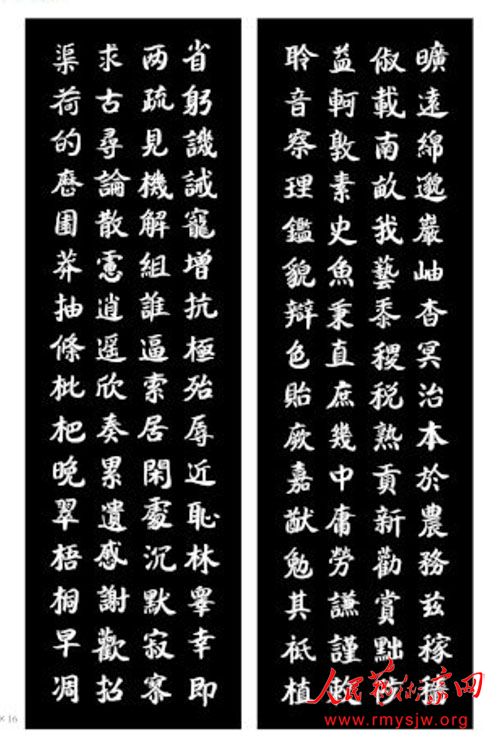 曠遠綿邈巖岫杳冥治本於農務茲稼穡
俶載南畝我藝黍稷稅熟貢新勸賞黜陟
孟軻敦素史魚秉直庶幾中庸勞謙謹敕
聆音察理鑑貌辯色貽厥嘉猷勉其祗植
省躬譏誡寵增抗極殆辱近恥林皋幸即
两疏見機解組誰逼索居閑處沉默寂寥
求古尋論散慮逍遙欣奏累遣感謝歡招
渠荷的歷園莽抽條枇杷晚翠梧桐早凋
×16
人民艺术家网
www.rmysjw.org